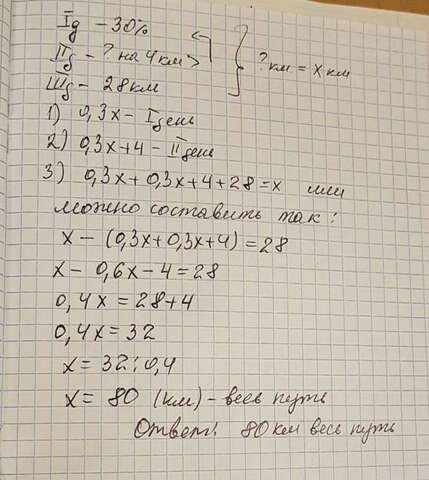 Iд - 30%
IIд - ? на 4 км >
IIIд - 28 км
? км = x км
1) 0,3x - I день
2) 0,3x+4 - II день
3) 0,3x+0,3x+4+28=x или
можно составить так:
x - (0,3x+0,3x+4)=28
x - 0,6x-4=28
0,4x=28+4
0,4x=32
x=32:0,4
x= 80 (км) - весь путь
Ответ: 80 км весь путь